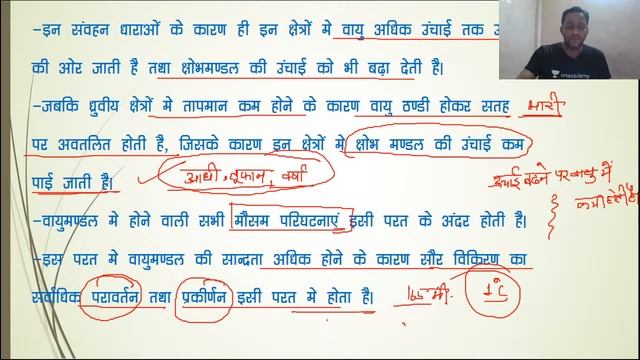 -इन संवहन धाराओं के कारण ही इन क्षेत्रों मे वायु अधिक उंचाई तक
की ओर जाती है तथा क्षोभमण्डल की उंचाई को भी बढ़ा देती है।
unacademy
-जबकि ध्रुवीय क्षेत्रों मे तापमान कम होने के कारण वायु ठण्डी होकर सतह भारी
पर अवतलित होती है, जिसके कारण इन क्षेत्रों मे क्षोभ मण्डल की उंचाई कम
पाई जाती है। आधी, तूफान, वर्षा
उंचाई बढने पर वायु में
कमी होती है
-वायुमण्डल मे होने वाली सभी मौसम परिघटनाएं इसी परत के अंदर होती है।
-इस परत मे वायुमण्डल की सान्द्रता अधिक होने के कारण सौर विकिरण का
सर्वाधिक परावर्तन तथा प्रकीर्णन इसी परत मे होता है। 165 मी. 1°C